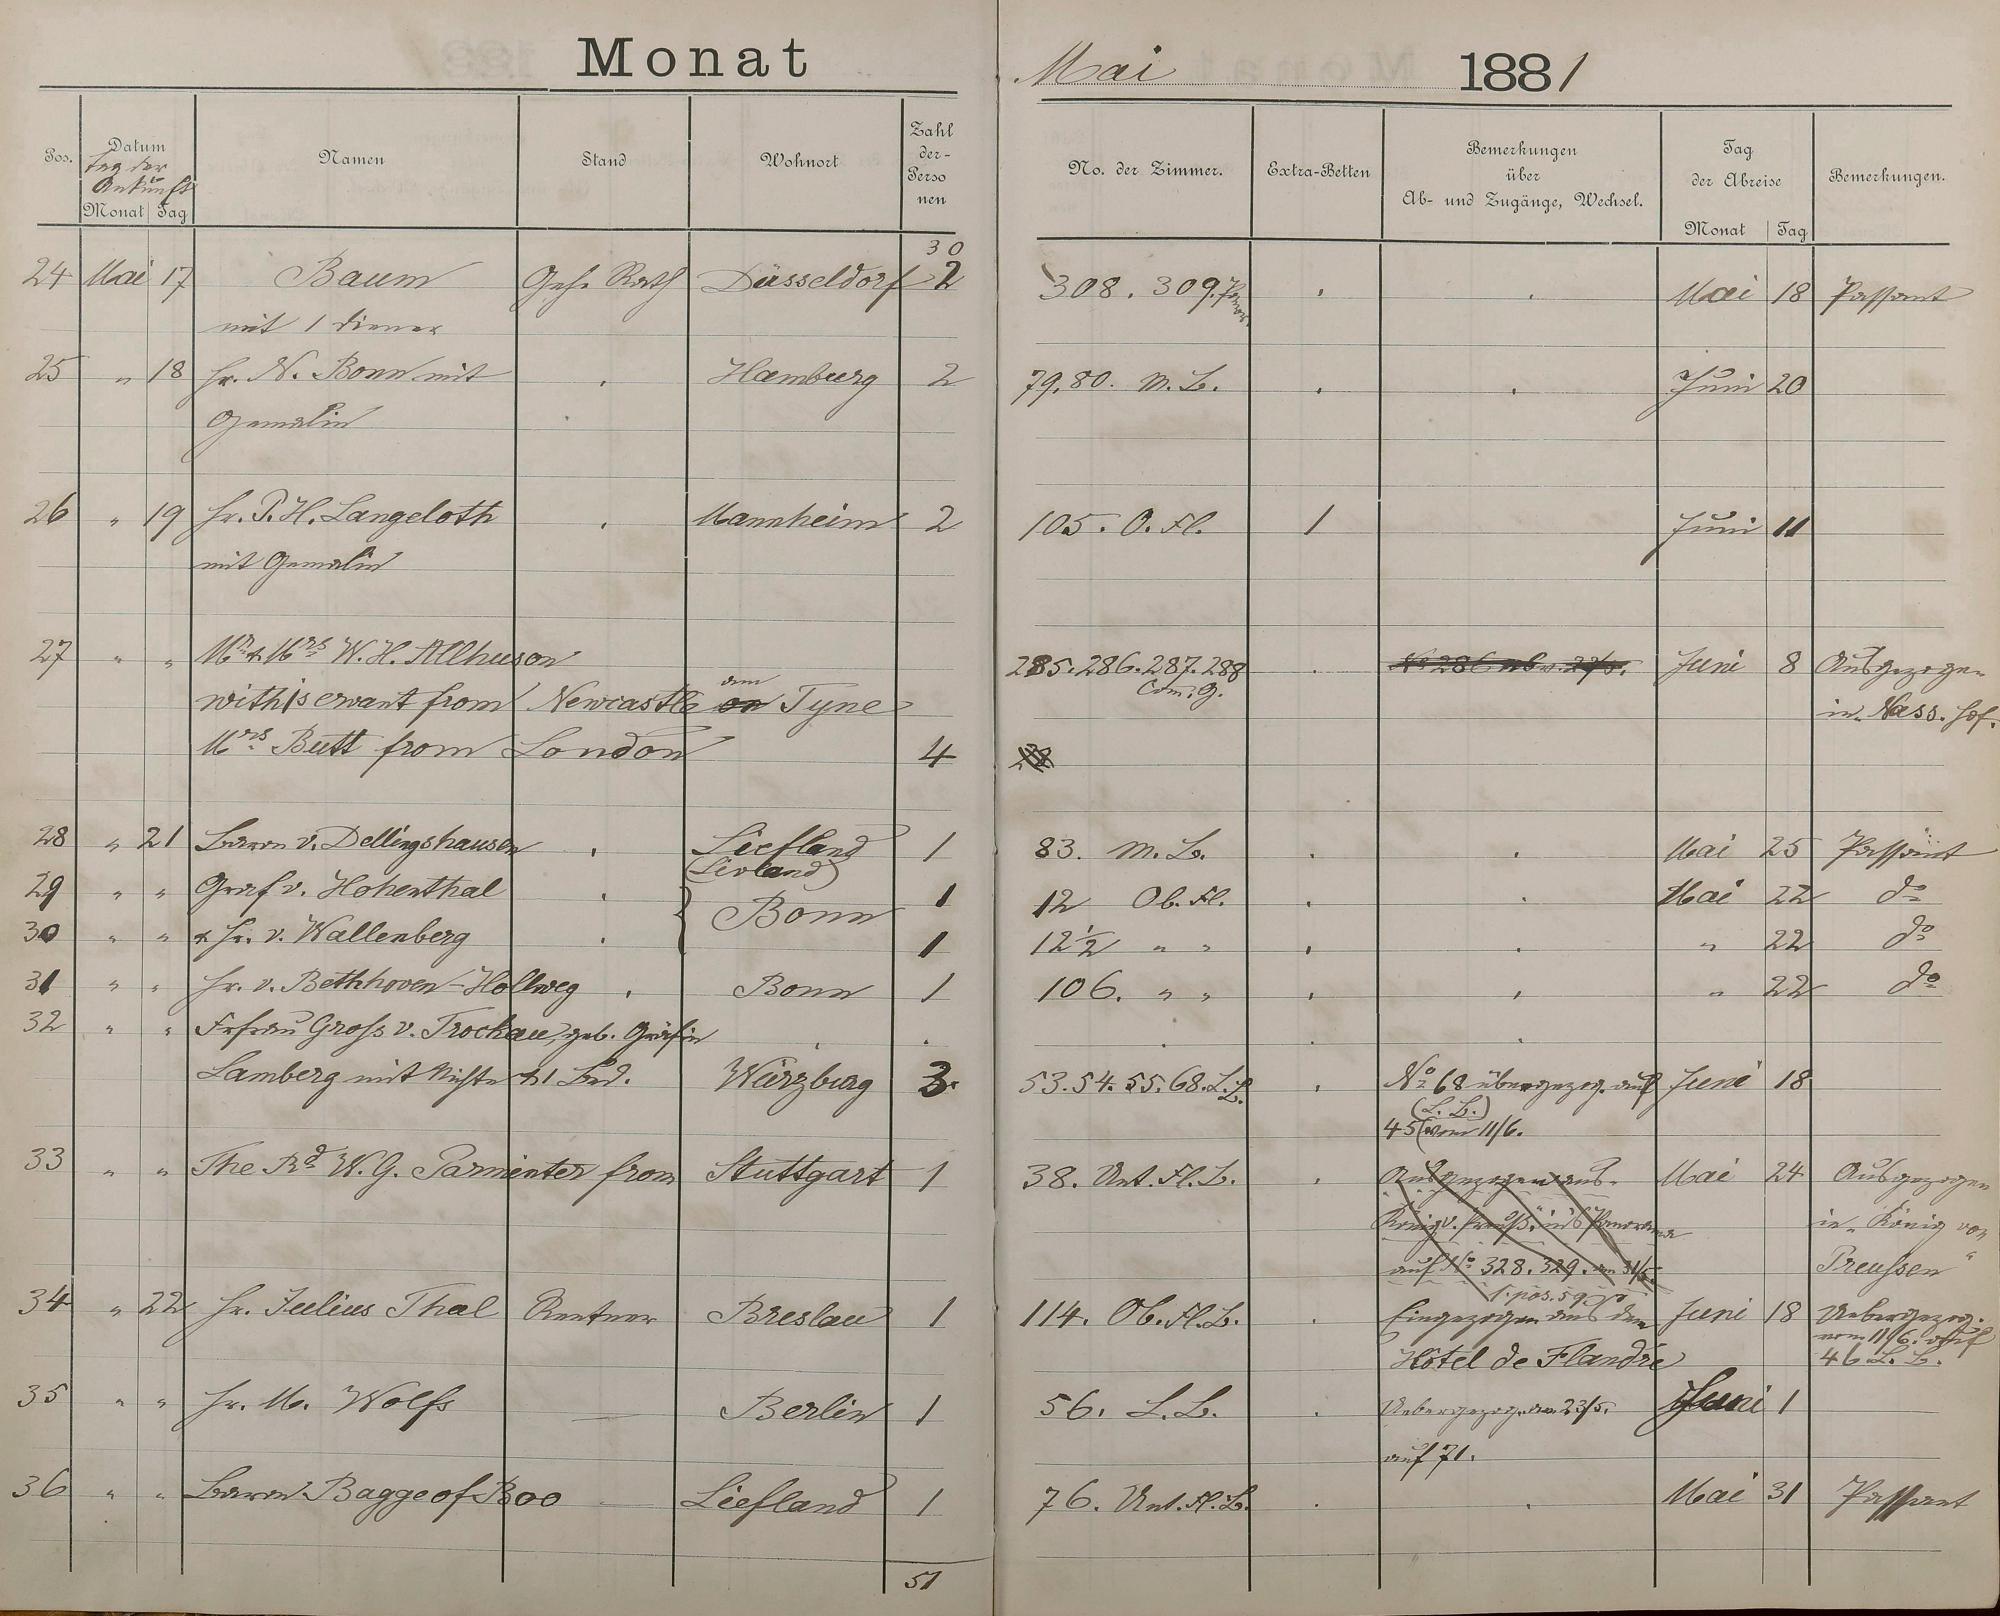 Monat Mai 1881
Pos. Datum Namen Stand Wohnort Zahl der- Perso nen No. der Zimmer. Extra-Betten Bemerkungen über Ab- und Zugänge, Wechsel. Tag der Abreise Bemerkungen.
Tag der Ankunft
Monat Tag Monat Tag
30
24 Mai 17 Baum Geh. Rath Düsseldorf 2 308. 309. Mai 18 Passant
mit 1 Diener
25 " 18 Hr. N. Bonn mit Hamburg 2 79. 80. M. B. Juni 20
Gemalin
26 " 19 Hr. P. H. Langeloth Mannheim 2 105. O. Fl. 1 Juni 11
mit Gemalin
27 " " Mr & Mrs W. H. Allhuson 285. 286. 287. 288 Juni 8 Ausgezogen
Com. g.
with 1 servant from Newcastle on am Tyne in Nass. Hof.
Mrs Butt from London 4
28 " 21 Baron v. Dellingshausen Liefland 1 83. M. B. Mai 25 Passant
(Livland)
29 " " Graf v. Hohenthal Bonn 1 12 Ob. Fl. Mai 22 do
30 " " & Hr. v. Wallenberg 1 12 1/2 " " " 22 do
31 " " Hr. v. Bethhoven-Hollweg Bonn 1 106. " " " 22 do
32 " " Frfrau Gross v. Trockau, geb. Gräfin
Lamberg mit Nichte & 1 Bed. Würzburg 3. 53. 54. 55. 68. L. B. No 68 übergezog. auf Juni 18
(L. B.)
45 vom 11/6.
33 " " The Rd W. G. Parminter from Stuttgart 1 38. Unt. Fl. B. Ausgezogen aus Mai 24 Ausgezogen
König v. Preuß. ins Panorama in "König von
auf No 328. 329. am 31/5. Preussen"
s. pos. 59
34 " 22 Hr. Julius Thal Rentner Breslau 1 114. Ob. Fl. B. Eingezogen aus dem Juni 18 Uebergezog.
vom 11/6. auf
Hôtel de Flandre 46 L. B.
35 " " Hr. M. Wolfs — Berlin 1 56. L. B. Uebergezog. am 23/5. Juni 1
auf 71.
36 " " Baron Bagge of Boo — Liefland 1 76. Unt. Fl. B. Mai 31 Passant
51